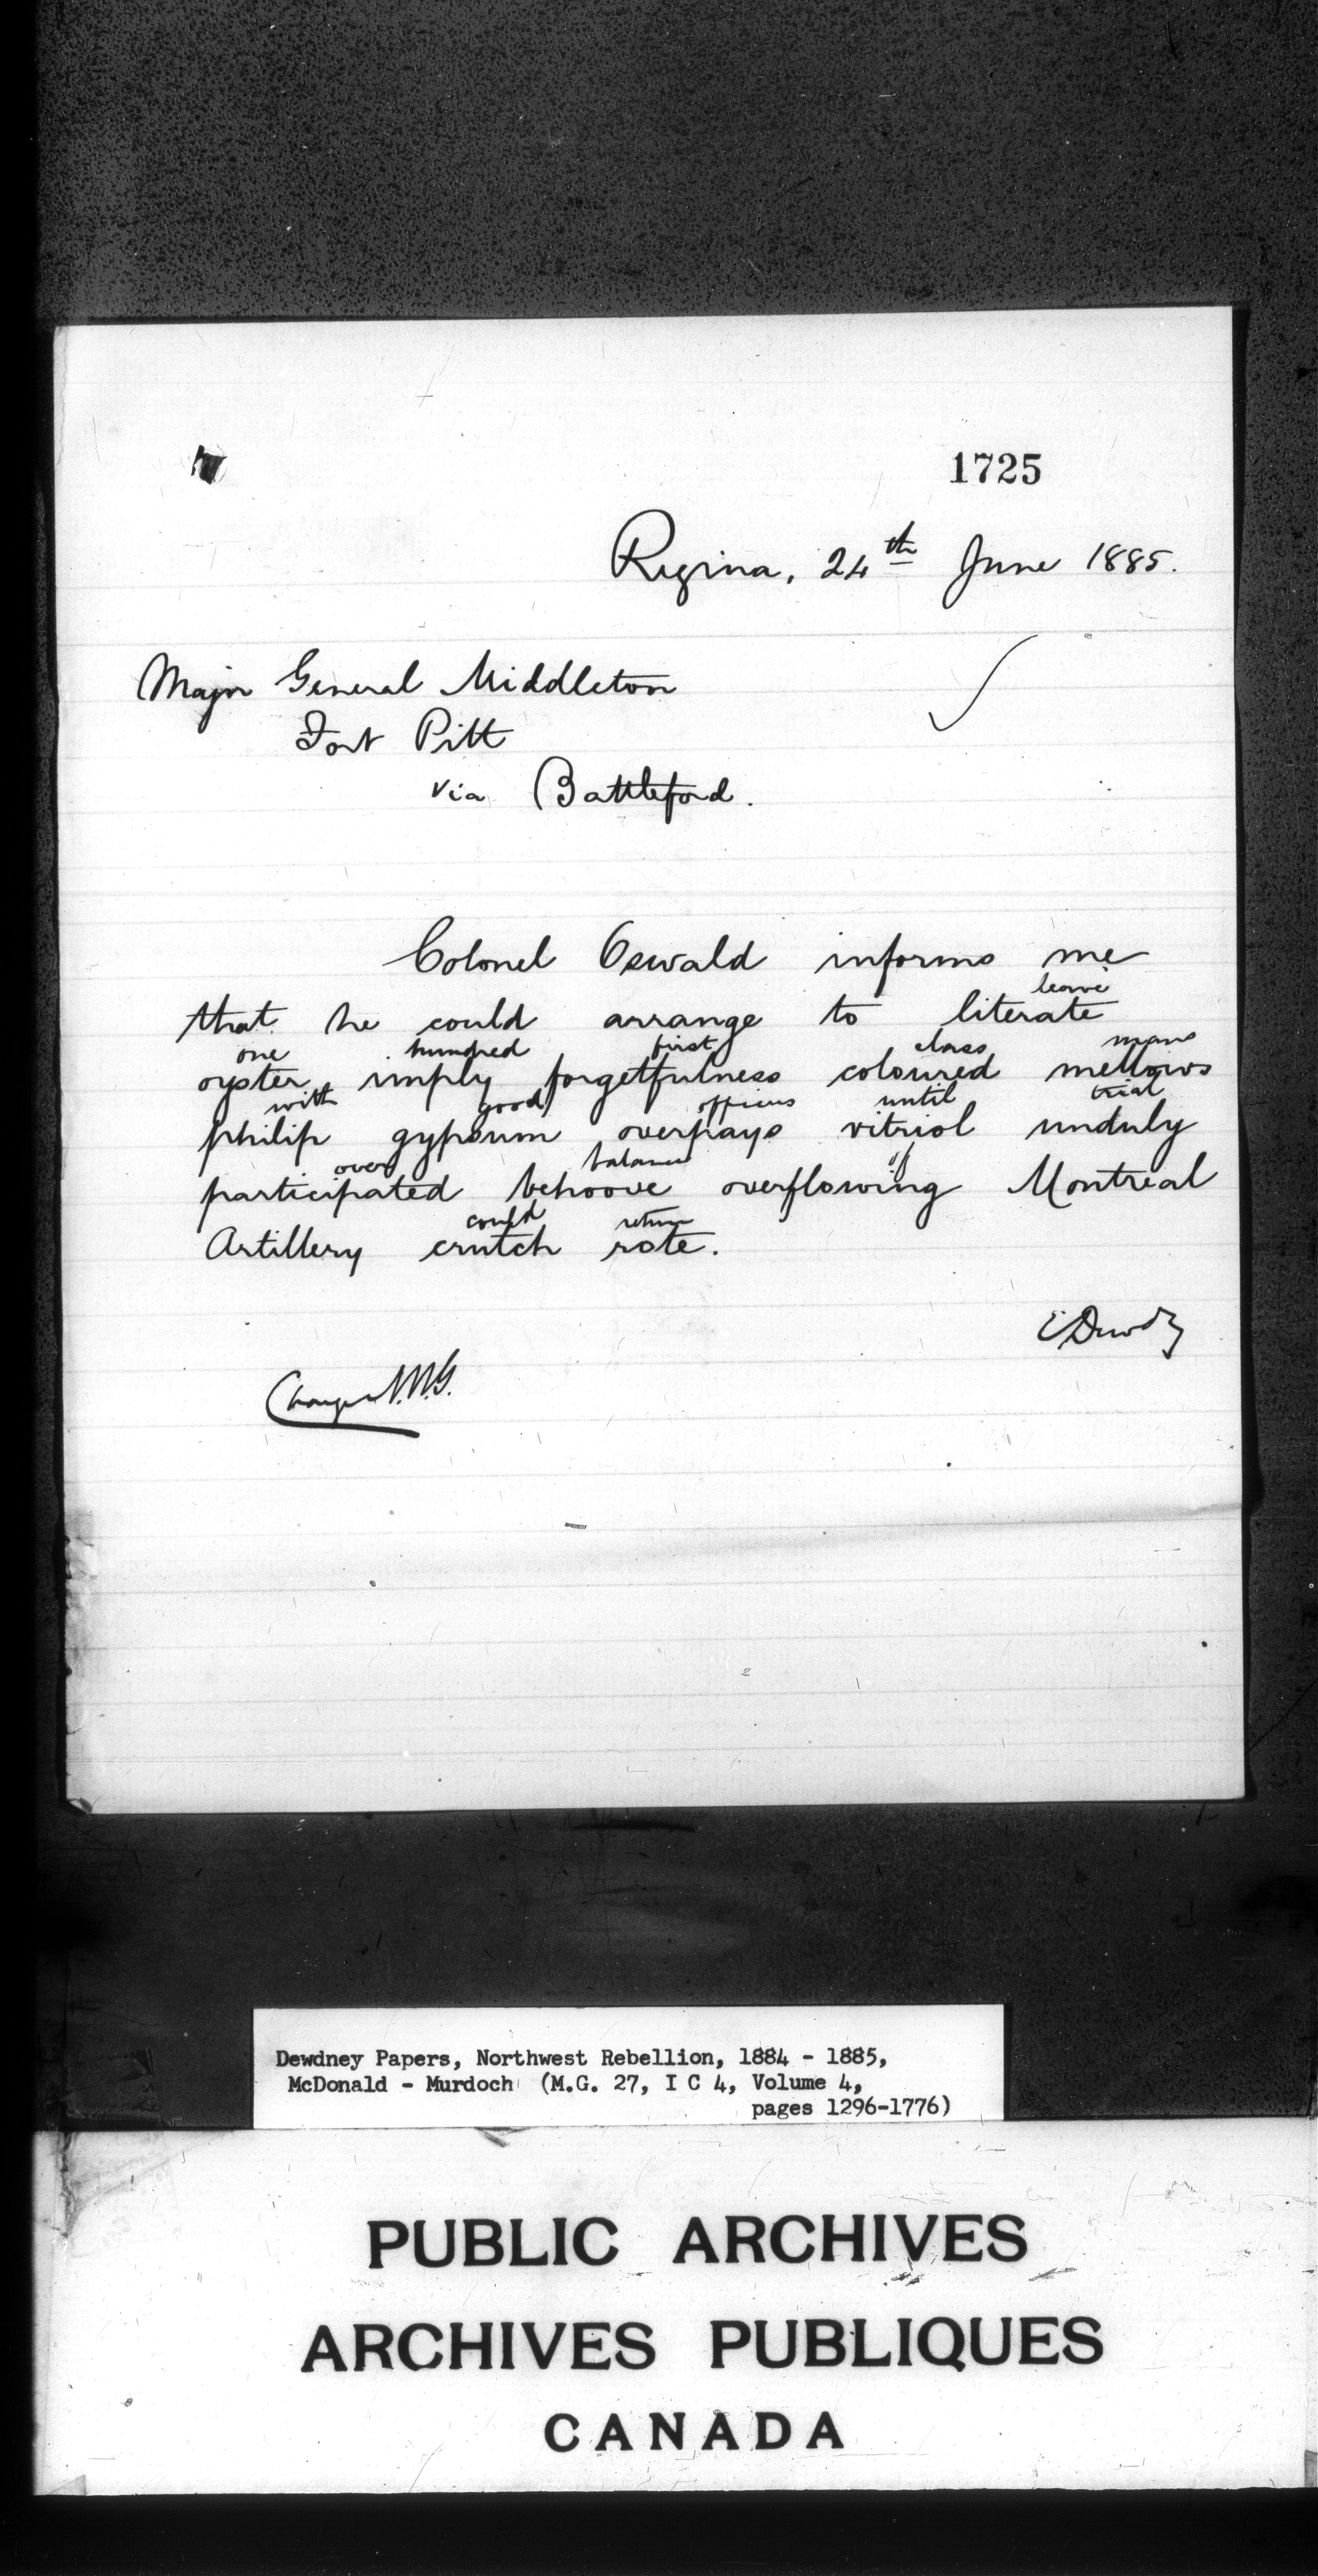 1725
Regina, 24th June 1885.
Major General Middleton
Fort Pitt
via Battleford.
Colonel Oswald informs me
leave
that he could arrange to literate
one hundred first class mans
oyster imply forgetfulness coloured mellows
with good officers until trial
philip gypsum overpays vitriol unduly
over balance of
participated behoove overflowing Montreal
could return
Artillery crutch rote.
E Dewdney
Charge N.W.G.
Dewdney Papers, Northwest Rebellion, 1884 - 1885,
McDonald - Murdoch (M.G. 27, I C 4, Volume 4,
pages 1296-1776)
PUBLIC ARCHIVES
ARCHIVES PUBLIQUES
CANADA